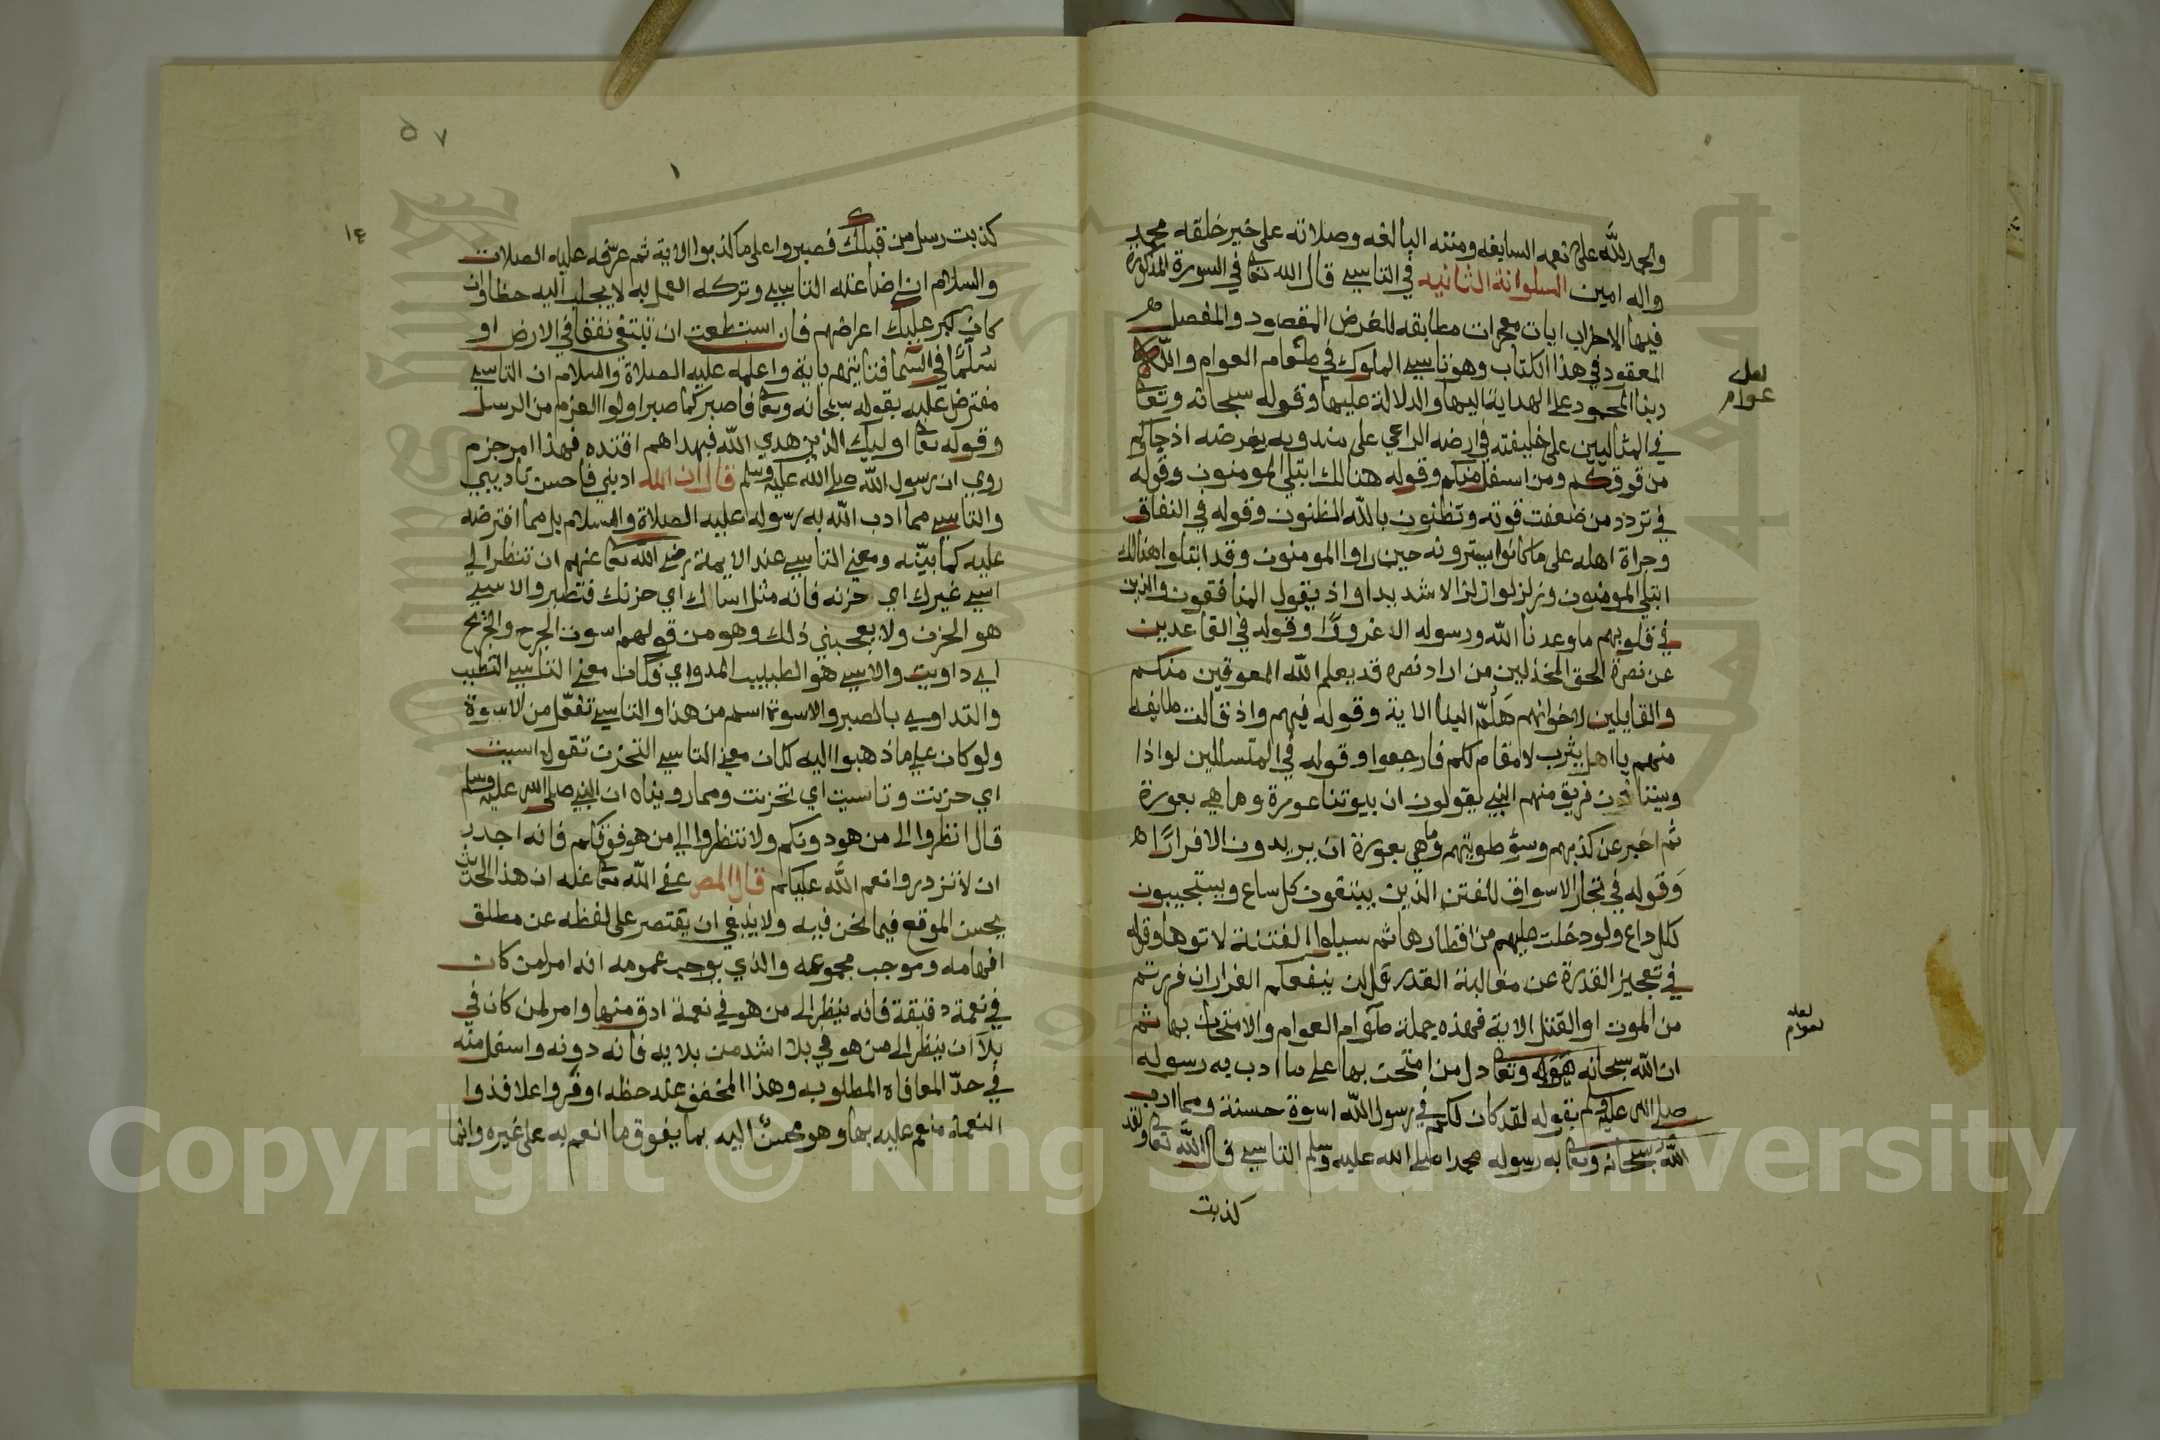 والحمد لله على نعمه السابغه ومننه البالغه وصلاته على خير خلقه محمد
واله امين السلوانة الثانيه في التاسي قال الله تعا في السورة المذكورة
فيها الاحزاب ايات معجزات مطابقه للغرض المقصود والمفصل
المعقود في هذا الكتاب وهو تاسي الملوك في طغام العوام والله
ربنا المحمود على الهداية اليها والدلالة عليها وقوله سبحانه وتعا
في المثاليين على خليفته في ارضه الراعي على مندوبه بفرضه اذ جاوكم
من فوقكم ومن اسفل منكم وقوله هنالك ابتلي المومنون وقوله
في تردد من ضعفت قوته وتظنون بالله الظنون وقوله في النفاق
وجراة اهله على ما كانوا يسترونه حين راوا المومنون وقد ابتلوا هنالك
ابتلي المومنون وزلزلوا زلزالا شديدا واذ يقول المنافقون والذين
في قلوبهم ما وعدنا الله ورسوله الا غرورا وقوله في القاعدين
عن نصرة الحق المخذلين من اراد نصره قد يعلم الله المعوقين منكم
والقايلين لاخوانهم هلم الينا الاية وقوله فيهم واذ قالت طايفة
منهم يا اهل يثرب لا مقام لكم فارجعوا وقوله في المتسللين لواذا
ويستاذن فريق منهم النبي يقولون ان بيوتنا عورة وما هي بعورة
ثم اخبر عن كذبهم وسؤ طويتهم وما هي بعورة ان يريدون الا فرارا
وقوله في تجار الاسواق للفتن الذين ينتقون كل ساع ويستجيبون
لكل داع ولو دخلت عليهم من اقطارها ثم سيلوا الفتنة لاتوها وقوله
في تعجيز القدرة عن مغالبة القدر قل لن ينفعكم الفرار ان فررتم
من الموت او القتل الاية فهذه جملة طوام العوام والامتحان بها ثم
ان الله سبحانه وتعا دل من امتحن بها على ما ادب به رسوله
صلى الله عليه وسلم بقوله لقد كان لكم في رسول الله اسوة حسنة ومما ادب
الله سبحانه وتعا به رسوله محمدا صلى الله عليه وسلم التاسي قال الله تعا ولقد
كذبت
لعله
عوام
لعله
لعوام
٥٧
١
١٤
كذبت رسل من قبلك فصبروا على ما كذبوا الاية ثم عرفه عليه الصلاة
والسلام ان اضاعة التاسي وتركه العمل به لا يجلب اليه حظا وان
كان كبر عليك اعراضهم فان استطعت ان تبتغي نفقا في الارض او
سلما في السما فتاتيهم باية واعلمه عليه الصلاة والسلام ان التاسي
مفترض عليه بقوله سبحانه وتعا فاصبر كما صبر اولوا العزم من الرسل
وقوله تعا اوليك الذين هدي الله فبهداهم اقتده فهذا امر جزم
روي ان رسول الله صلى الله عليه وسلم قال ان الله ادبني فاحسن تاديبي
والتاسي مما ادب الله به رسوله عليه الصلاة والسلام بل مما افترضه
عليه كما بينه ومعني التاسي عند الايمة رضي الله تعا عنهم ان تنظر الي
اسي غيرك اي حزنه فانه مثل اساك اي حزنك فتصبر والاسي
هو الحزن ولا يعجبني ذلك وهو من قولهم اسوت الجرح والجريح
اي داويت والاسي هو الطبيب المداوي فكان معني التاسي التطبب
والتداوي بالصبر والاسوة اسم من هذا والتاسي تفعل من الاسوة
ولو كان علي ما ذهبوا اليه لكان معني التاسي التحزن تقول اسيت
اي حزنت وتاسيت اي تحزنت ومما رويناه ان النبي صلى الله عليه وسلم
قال انظروا الى من هو دونكم ولا تنظروا الي من هو فوقكم فانه اجدر
ان لا تزدروا نعم الله عليكم قال المص عفي الله تعا عنه ان هذا الحديث
يحسن الموقع فيما نحن فيه ولا ينبغي ان يقتصر على لفظه عن مطلق
افهامه وموجب مجموعه والذي يوجب عمومه انه امر من كان
في نعمة دقيقة فانه ينظر الى من هو في نعمة ادق منها وامر لمن كان في
بلا ان ينظر الى من هو في بلا اشد من بلايه فانه دونه واسفل منه
في حد المعافاة المطلوبه وهذا المخفف عنه حظه اوفر واعلا فذوا
النعمة منعم عليه بها وهو محسن اليه بما يفوق ما انعم به على غيره وانما